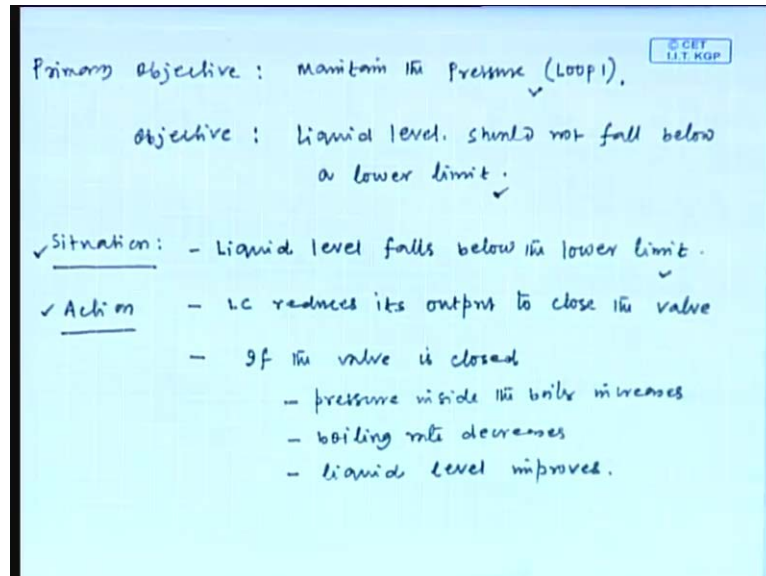 © CET
I.I.T. KGP
Primary objective : maintain the Pressure (Loop 1).
objective : Liquid level. should not fall below
a lower limit.
Situation: - Liquid level falls below the lower limit.
Action - LC reduces its output to close the valve
- If the valve is closed
- pressure inside the boiler increases
- boiling rate decreases
- liquid level improves.